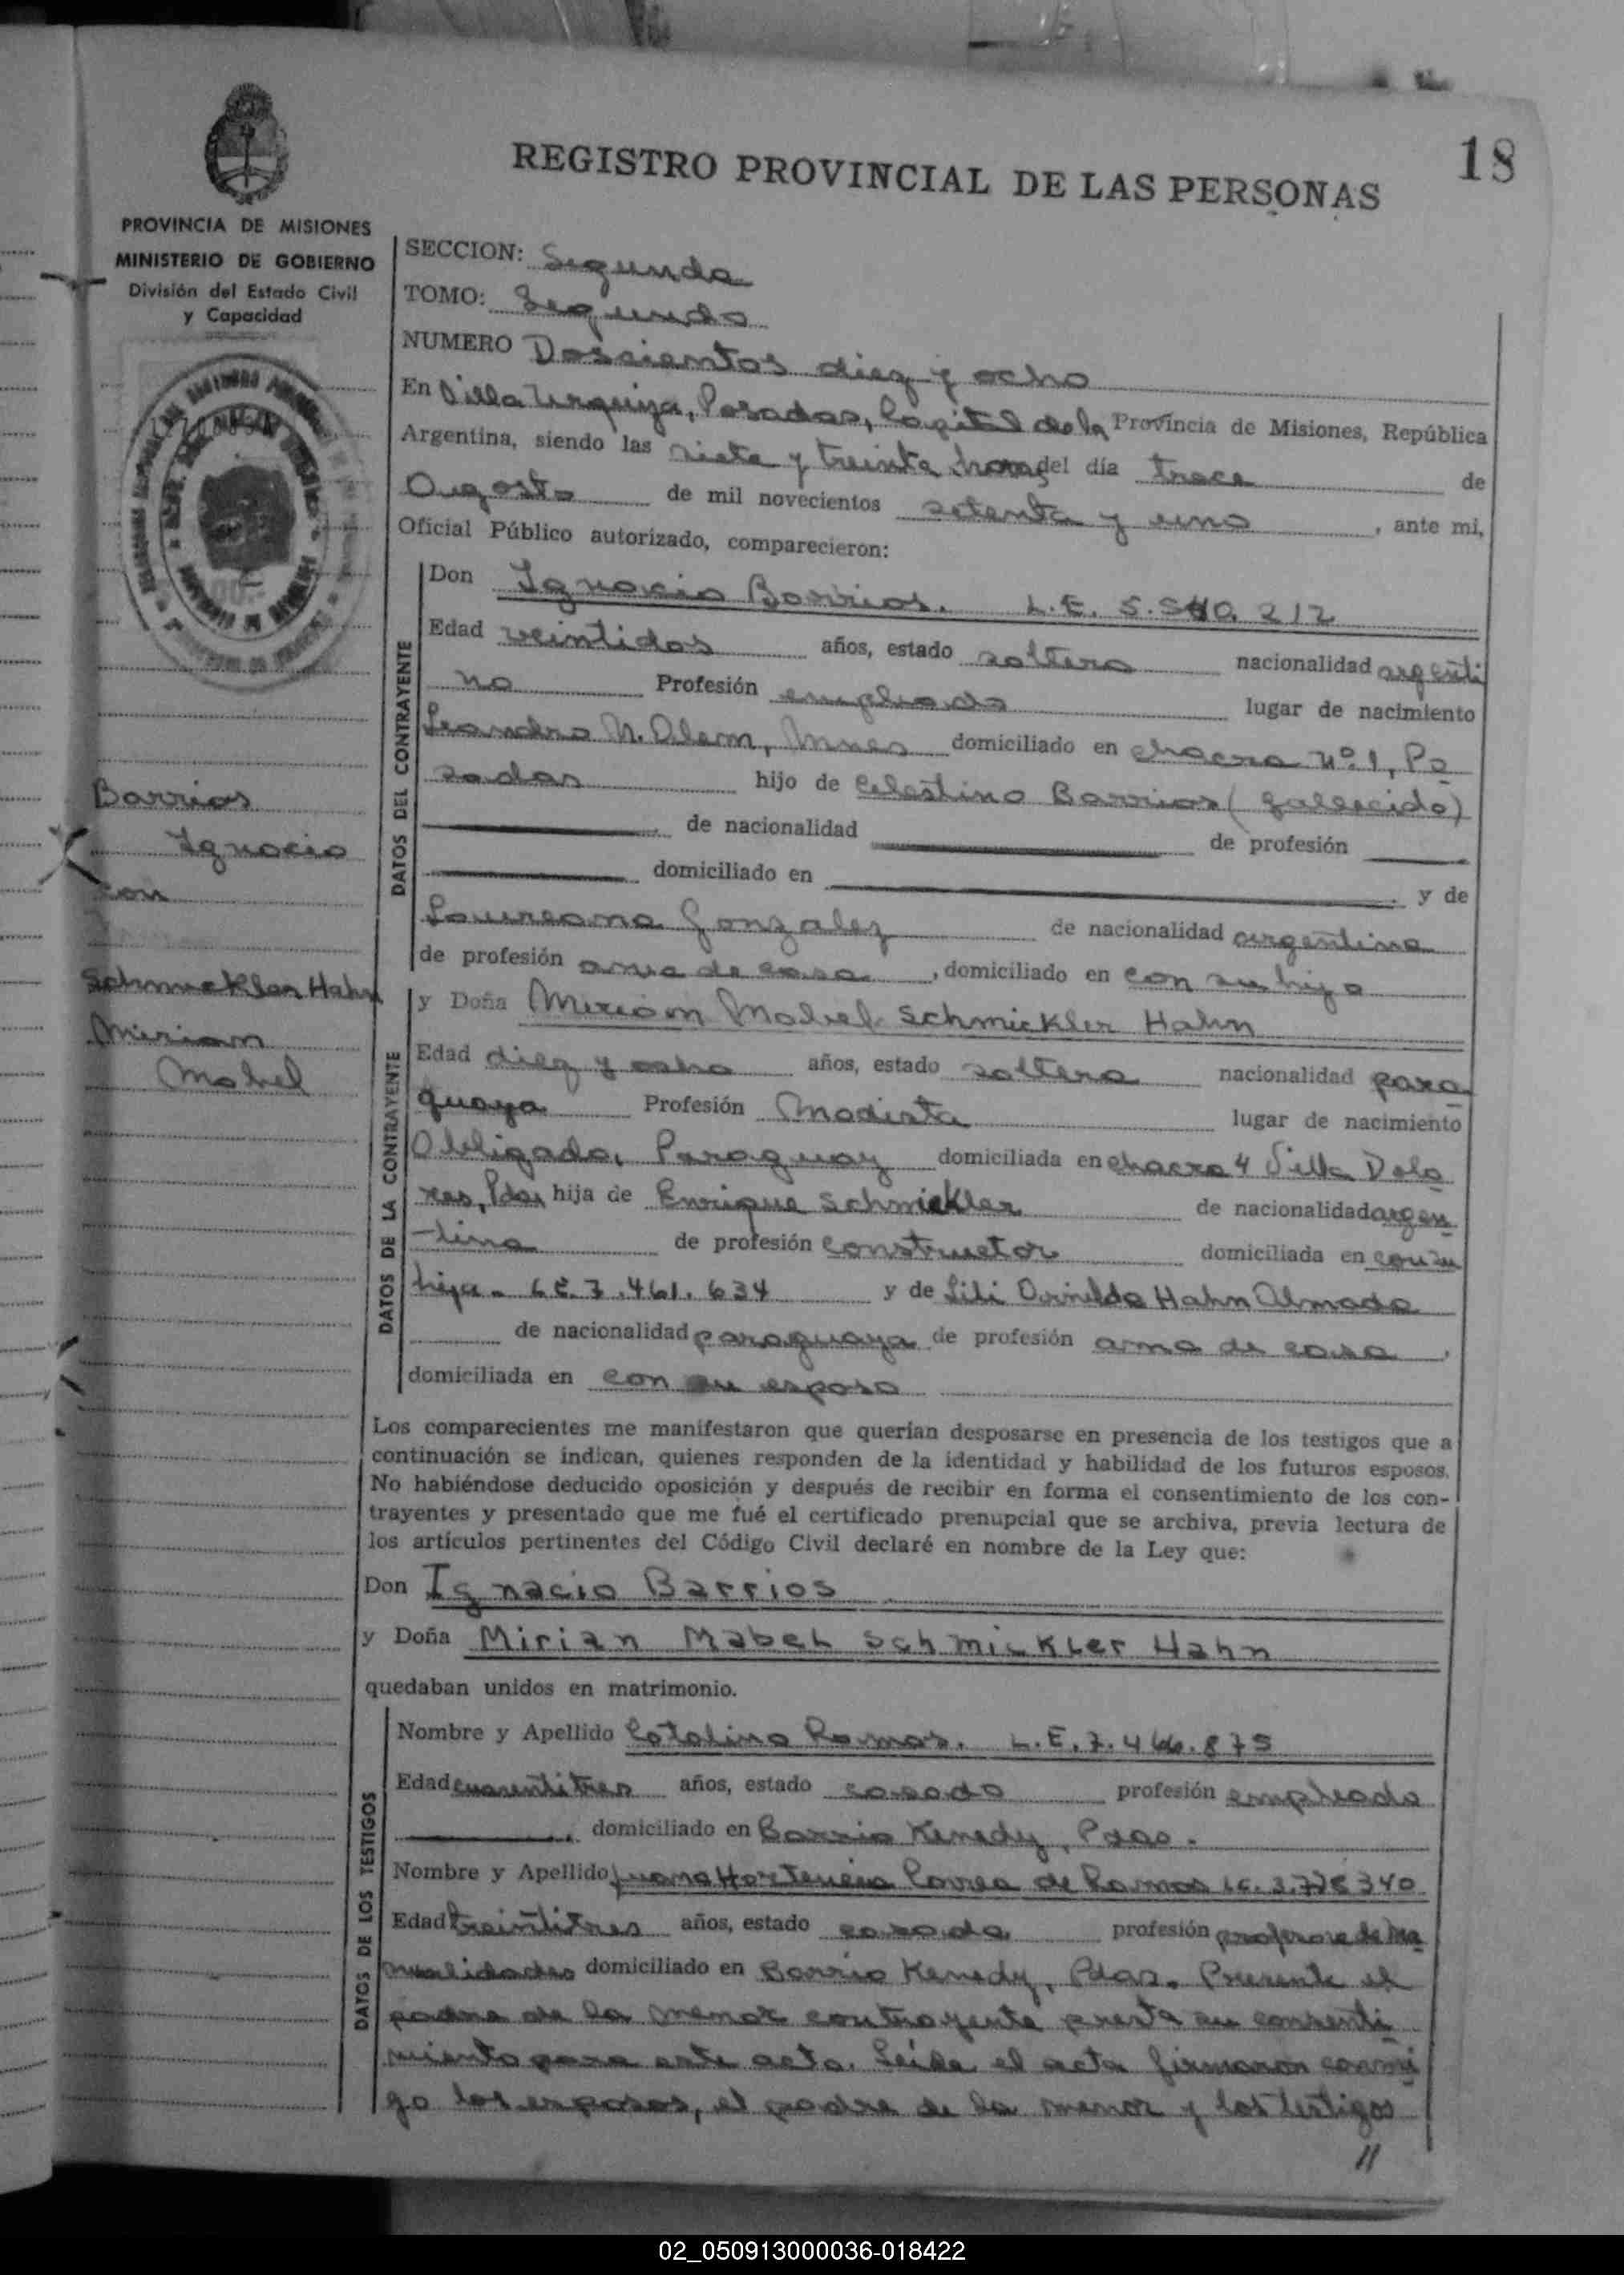 18
REGISTRO PROVINCIAL DE LAS PERSONAS
PROVINCIA DE MISIONES
MINISTERIO DE GOBIERNO
División del Estado Civil
y Capacidad
SECCION: Segunda
TOMO: Segundo
NUMERO Doscientos diez y ocho
En Villa Urquiza, Posadas, Capital de la Provincia de Misiones, República
Argentina, siendo las siete y treinta horas del día trece de
Agosto de mil novecientos setenta y uno, ante mi,
Oficial Público autorizado, comparecieron:
DATOS DEL CONTRAYENTE
Don Ignacio Barrios. L.E. 5.540.212
Edad veintidos años, estado soltero nacionalidad argenti
no Profesión empleado lugar de nacimiento
Leandro N. Alem, Mnes domiciliado en chacra Nº 1, Po
sadas hijo de Celestino Barrios (fallecido)
de nacionalidad de profesión
domiciliado en y de
Laureana Gonzalez de nacionalidad argentina
de profesión ama de casa, domiciliado en con su hijo
Barrios
Ignacio
con
Schmickler Hahn
Miriam
Mabel
DATOS DE LA CONTRAYENTE
y Doña Miriam Mabel Schmickler Hahn
Edad diez y ocho años, estado soltera nacionalidad para
guaya Profesión Modista lugar de nacimiento
Obligado, Paraguay domiciliada en chacra 4 Villa Dolo
res, Pdas hija de Enrique Schmickler de nacionalidad argen
tina de profesión constructor domiciliada en con su
hija. LE. 7.461.634 y de Lili Hahn Almada
de nacionalidad paraguaya de profesión ama de casa,
domiciliada en con su esposo
Los comparecientes me manifestaron que querían desposarse en presencia de los testigos que a
continuación se indican, quienes responden de la identidad y habilidad de los futuros esposos.
No habiéndose deducido oposición y después de recibir en forma el consentimiento de los con-
trayentes y presentado que me fué el certificado prenupcial que se archiva, previa lectura de
los artículos pertinentes del Código Civil declaré en nombre de la Ley que:
Don Ignacio Barrios
y Doña Mirian Mabel Schmickler Hahn
quedaban unidos en matrimonio.
DATOS DE LOS TESTIGOS
Nombre y Apellido Catalino Ramos. L.E. 7.466.875
Edad cuarentitres años, estado casado profesión empleado
domiciliado en Barrio Kenedy, Pdas.
Nombre y Apellido Juana Hortencia Correa de Ramos LC. 3.778340
Edad treintitres años, estado casada profesión profesora de Ma
nualidades domiciliado en Barrio Kenedy, Pdas. Presente el
padre de la menor contrayente presta su consenti
miento para este acto. Leída el acta firmaron conmi
go los esposos, el padre de la menor y los testigos
//
02_050913000036-018422